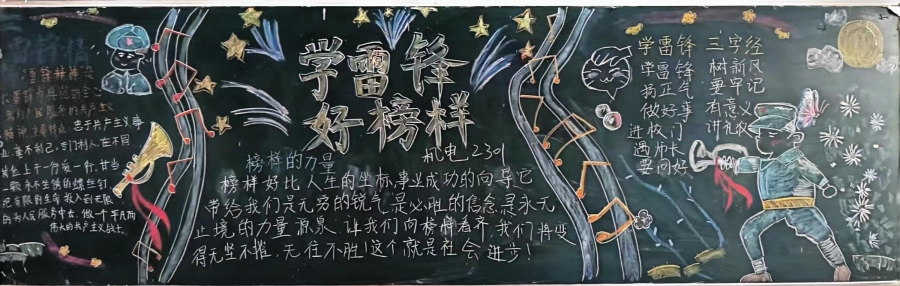 学雷锋
好榜样
机电2301
雷锋精神
忠于共产主义事
业,毫不利己,专门利人,在不同
岗位上干一行爱一行,甘当
一颗永不生锈的螺丝钉,
把有限的生命投入到无限
的为人民服务中去,做一个平凡而
伟大的共产主义战士。
榜样的力量
榜样好比人生的坐标,事业成功的向导,它
带给我们是无穷的锐气,是必胜的信念,是永无
止境的力量源泉,让我们向榜样看齐,我们将变
得无坚不摧,无往不胜!这个就是社会进步!
学雷锋 三字经
学雷锋 树新风
扬正气 要牢记
做好事 有意义
进校门 讲礼仪
遇师长
要问好